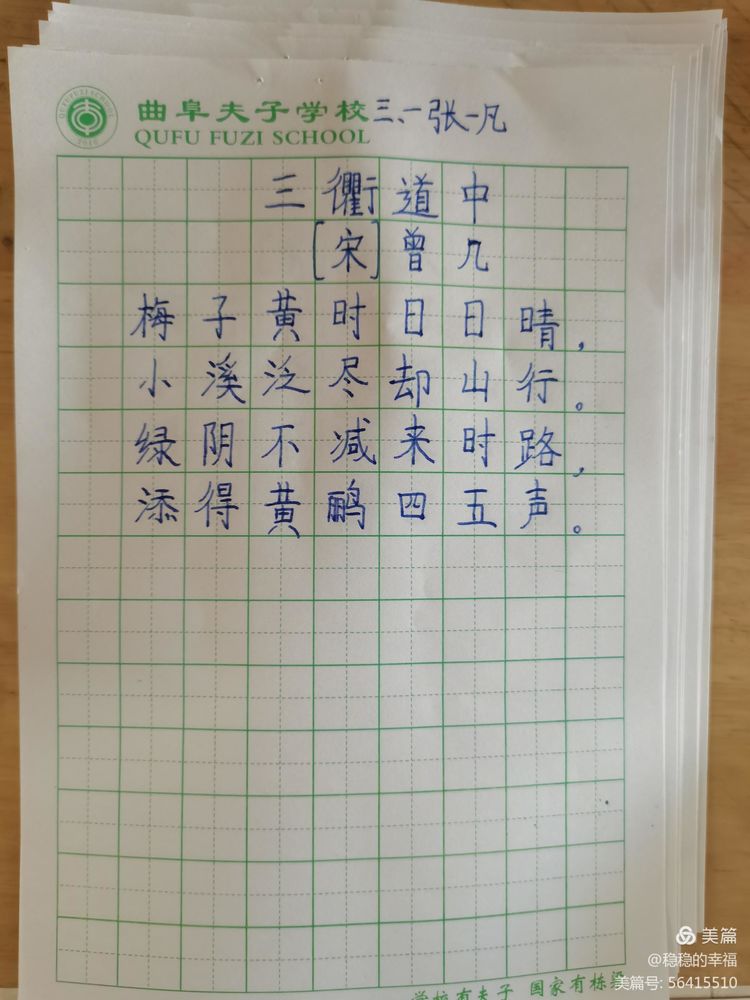 曲阜夫子学校 三、一 张一凡
QUFU FUZI SCHOOL
三衢道中
[宋]曾几
梅子黄时日日晴，
小溪泛尽却山行。
绿阴不减来时路，
添得黄鹂四五声。
学校有夫子 国家有栋梁
美篇
@稳稳的幸福
美篇号: 56415510